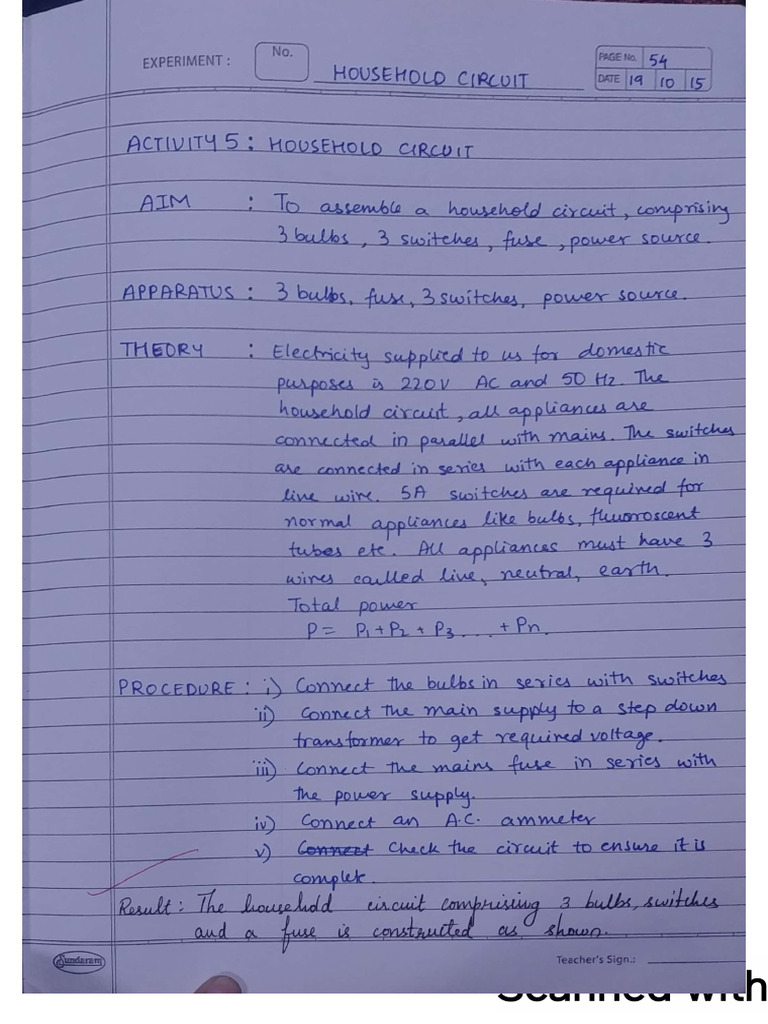 EXPERIMENT : No. HOUSEHOLD CIRCUIT PAGE No. 54
DATE 19 10 15
ACTIVITY 5 : HOUSEHOLD CIRCUIT
AIM : To assemble a household circuit, comprising
3 bulbs, 3 switches, fuse, power source.
APPARATUS : 3 bulbs, fuse, 3 switches, power source.
THEORY : Electricity supplied to us for domestic
purposes is 220V AC and 50 Hz. The
household circuit, all appliances are
connected in parallel with mains. The switches
are connected in series with each appliance in
live wire. 5A switches are required for
normal appliances like bulbs, fluoroscent
tubes etc. All appliances must have 3
wires caulled live, neutral, earth.
Total power
P = P1 + P2 + P3.... + Pn.
PROCEDURE : i) Connect the bulbs in series with switches
ii) Connect the main supply to a step down
transformer to get required voltage.
iii) Connect the mains fuse in series with
the power supply.
iv) Connect an A.C. ammeter
v) Connect Check the circuit to ensure it is
complete.
Result : The household circuit comprising 3 bulbs, switches
and a fuse is constructed as shown.
Sundaram Teacher's Sign.:
Scanned with